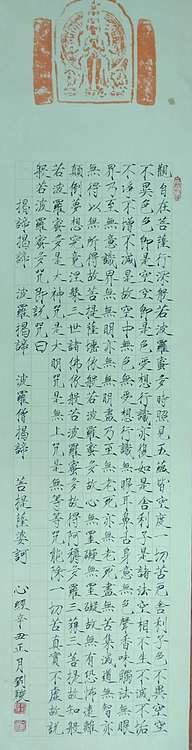 觀自在菩薩行深般若波羅蜜多時照見五蘊皆空度一切苦厄舍利子色不異空空
不異色色即是空空即是色受想行識亦復如是舍利子是諸法空相不生不滅不垢
不淨不增不減是故空中無色無受想行識無眼耳鼻舌身意無色聲香味觸法無眼
界乃至無意識界無無明亦無無明盡乃至無老死亦無老死盡無苦集滅道無智亦
無得以無所得故菩提薩埵依般若波羅蜜多故心無罣礙無罣礙故無有恐怖遠離
顛倒夢想究竟涅槃三世諸佛依般若波羅蜜多故得阿耨多羅三藐三菩提故知般
若波羅蜜多咒是大神咒是大明咒是無上咒是無等等咒能除一切苦真實不虛故說
般若波羅蜜多咒即說咒曰
揭諦揭諦 波羅揭諦 波羅僧揭諦 菩提薩婆訶 心經辛丑正月劉